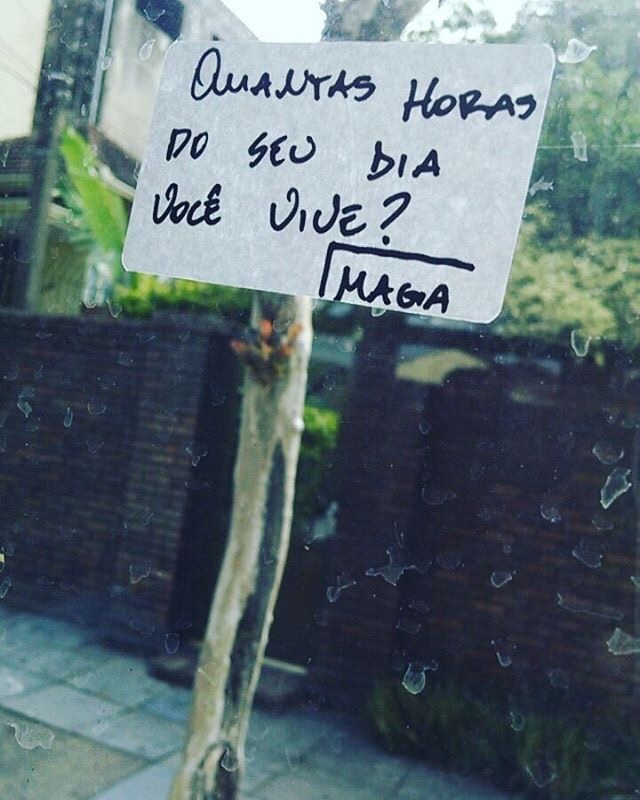 QUANTAS HORAS
DO SEU DIA
VOCÊ VIVE?
MAGIA